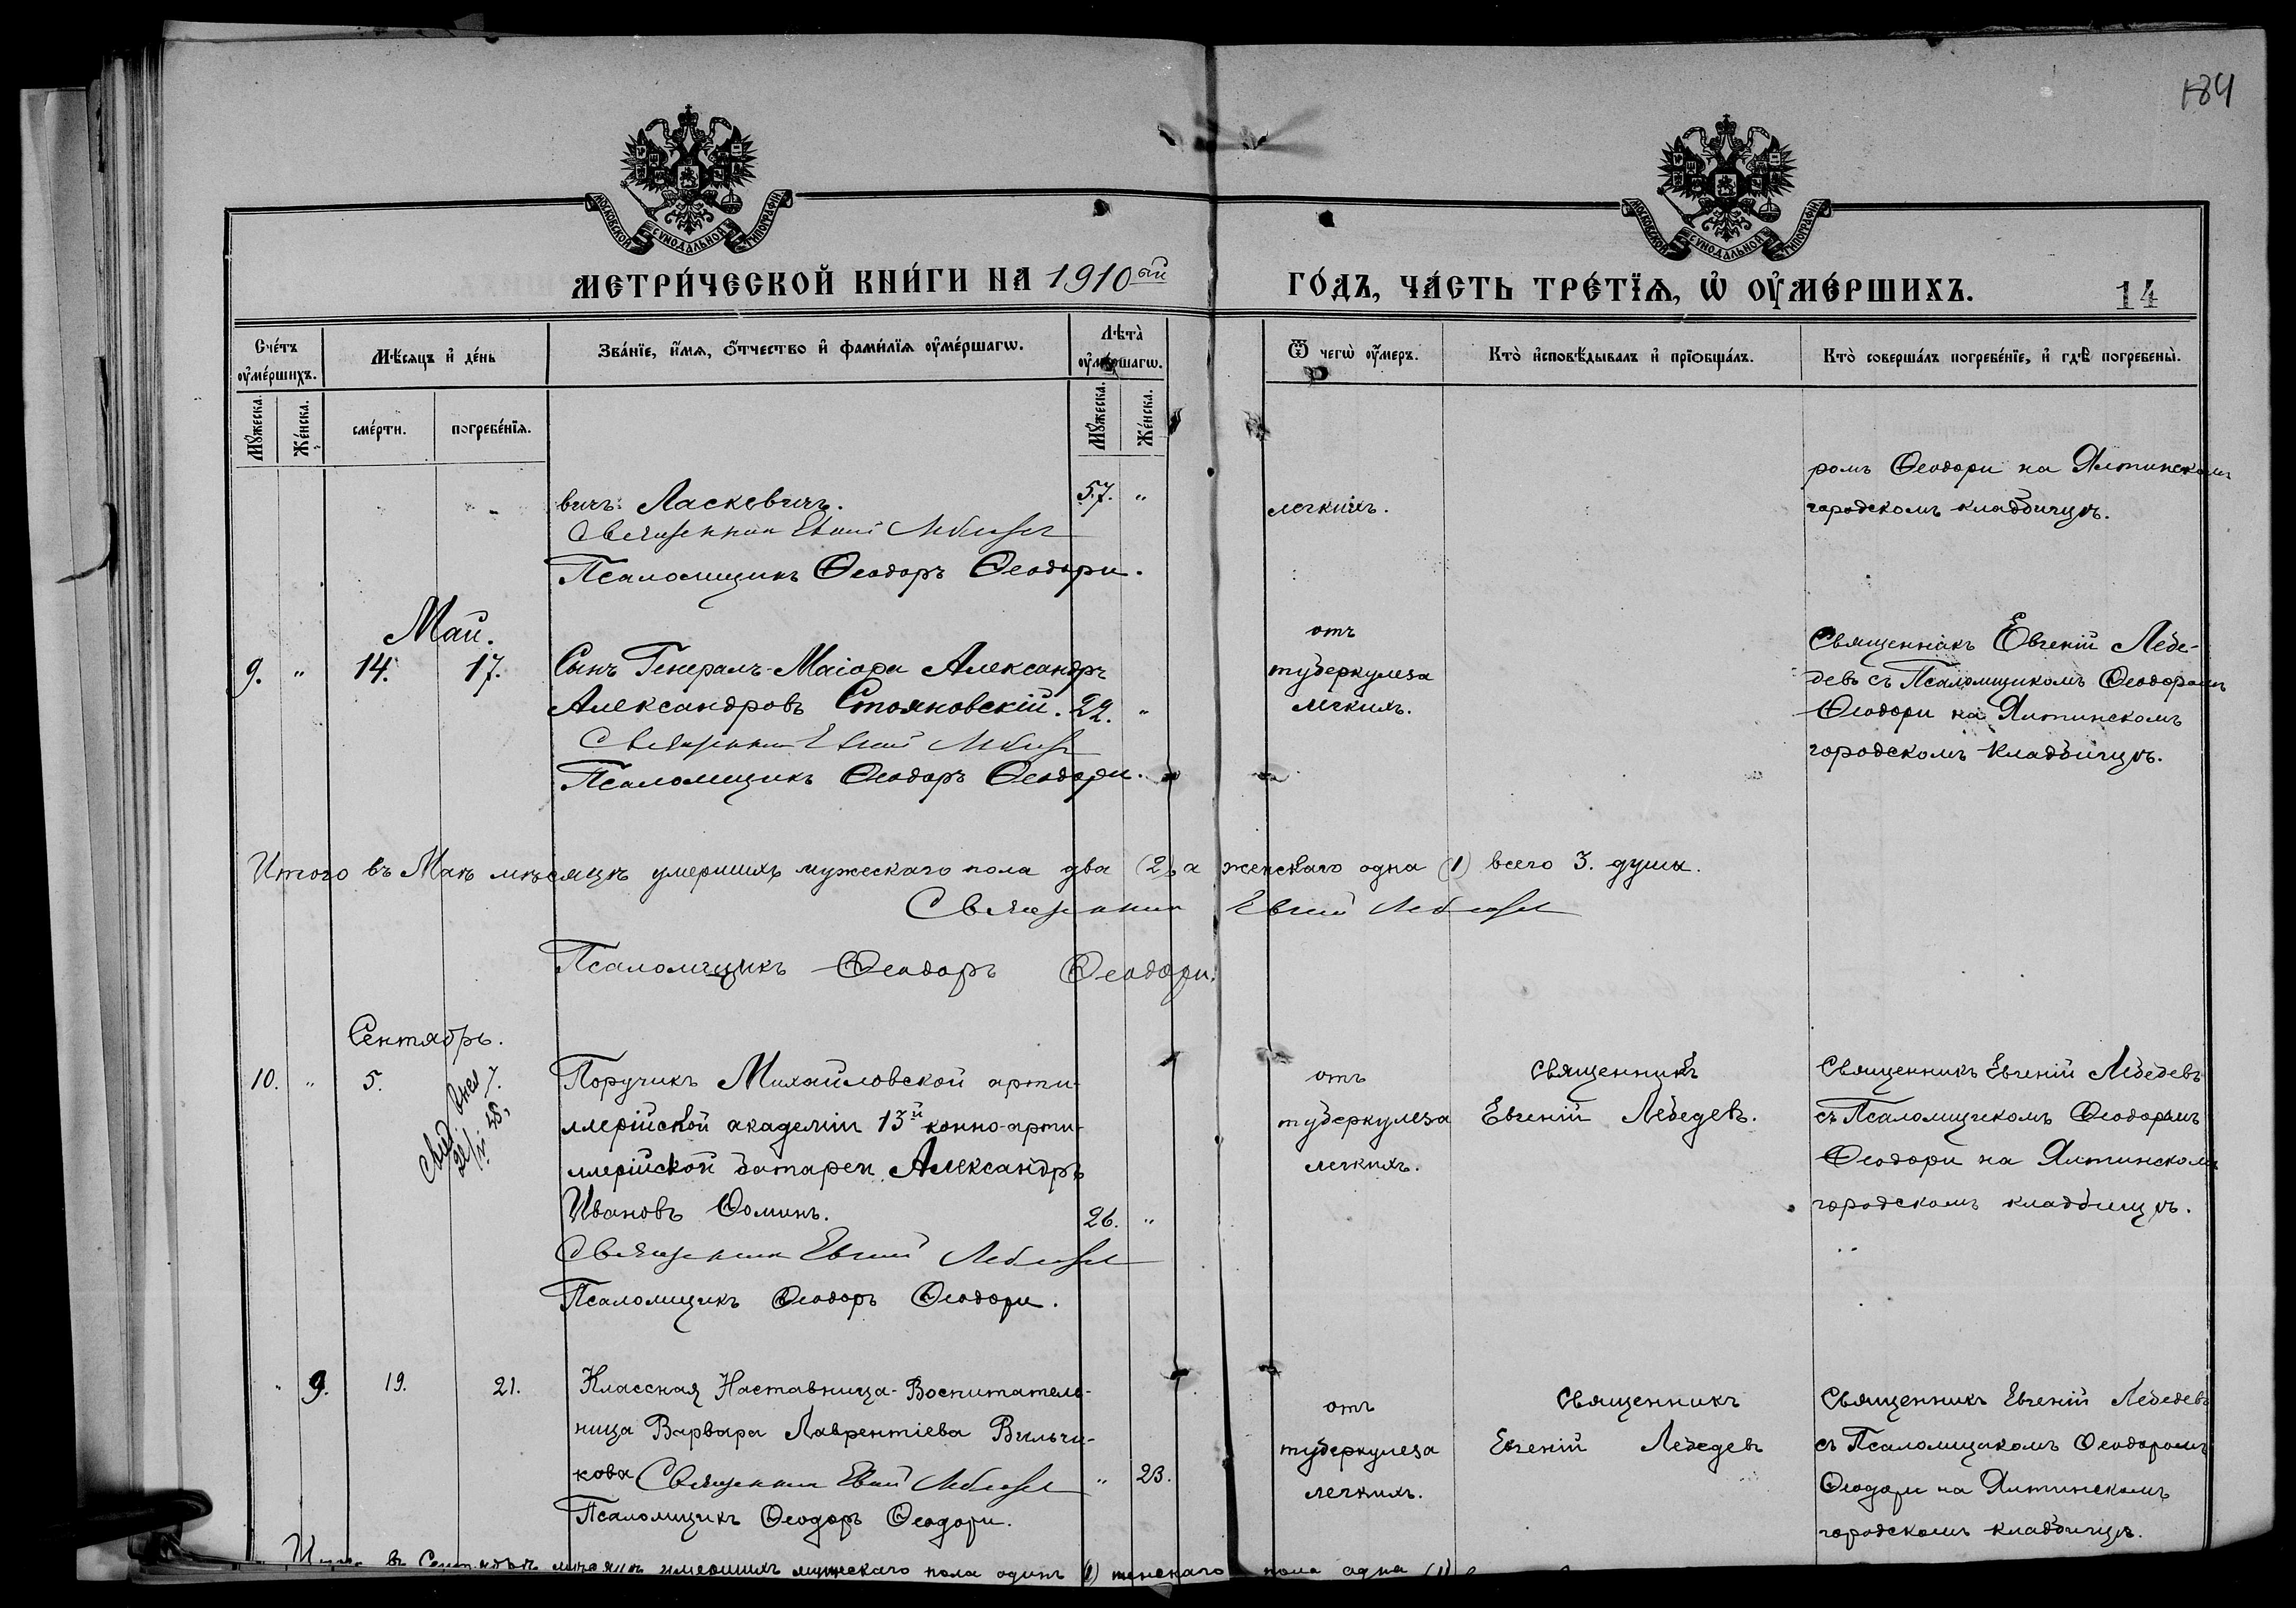 184
МОСКОВСКОЙ СУНОДАЛЬНОЙ ТИПОГРАФІИ
МОСКОВСКОЙ СУНОДАЛЬНОЙ ТИПОГРАФІИ
МЕТРИ́ЧЕСКОЙ КНИ́ГИ НА 1910ый ГО́ДЪ, ЧА́СТЬ ТРЕ́ТЇѦ, Ѡ҆ ОУ҆МЕ́РШИХЪ. 14
Сче́тъ оу҆ме́ршихъ.
Мѣ́сяцъ и҆ де́нь
Зва́нїе, и҆́мя, ѻ҆́тчество и҆ фами́лїя оу҆ме́ршагѡ.
Лѣта̀ оу҆ме́ршагѡ.
Ѿ чегѡ̀ оу҆́меръ.
Кто̀ и҆сповѣ́дывалъ и҆ прїѡбща́лъ.
Кто̀ соверша́лъ погребе́нїе, и҆ гдѣ̀ погребены̀.
Мꙋ́жеска. Же́нска. сме́рти. погребе́нїя. Мꙋ́жеска. Же́нска.
вичъ Ласкевичъ. 57. "
Священник Евгений Лебедев
Псаломщикъ Ѳеодоръ Ѳеодори.
легкихъ.
ромъ Ѳеодори на Ялтинскомъ
городскомъ кладбищѣ.
Май.
9. " 14. 17. Сынъ Генералъ-Маіора Александръ
Александровъ Стояновскій. 22. "
Священник Евгений Лебедев
Псаломщикъ Ѳеодоръ Ѳеодори.
отъ
туберкулеза
легкихъ.
Священникъ Евгеній Лебе-
девъ съ Псаломщикомъ Ѳеодоромъ
Ѳеодори на Ялтинскомъ
городскомъ кладбищѣ.
Итого въ Маѣ мѣсяцѣ умершихъ мужескаго пола два (2), а женскаго одна (1) всего 3. души.
Священник Евгений Лебедев
Псаломщикъ Ѳеодоръ Ѳеодори.
Сентябрь.
10. " 5. 7. Поручикъ Михайловской арти-
ллерійской академіи 13й конно-арти-
ллерійской батареи Александръ
Ивановъ Ѳоминъ. 26. "
Священник Евгений Лебедев
Псаломщикъ Ѳеодоръ Ѳеодори.
отъ
туберкулеза
легкихъ.
Священникъ
Евгеній Лебедевъ.
Священникъ Евгеній Лебедевъ
съ Псаломщикомъ Ѳеодоромъ
Ѳеодори на Ялтинскомъ
городскомъ кладбищѣ.
" 9. 19. 21. Классная Наставница-Воспитатель-
ница Варвара Лаврентіева Вильчи-
кова Священник Евгений Лебедев " 23.
Псаломщикъ Ѳеодоръ Ѳеодори.
отъ
туберкулеза
легкихъ.
Священникъ
Евгеній Лебедевъ
Священникъ Евгеній Лебедевъ
съ Псаломщикомъ Ѳеодоромъ
Ѳеодори на Ялтинскомъ
городскомъ кладбищѣ.
Итого въ Сентябрѣ мѣсяцѣ умершихъ мужескаго пола одинъ (1) женскаго пола одна (1)